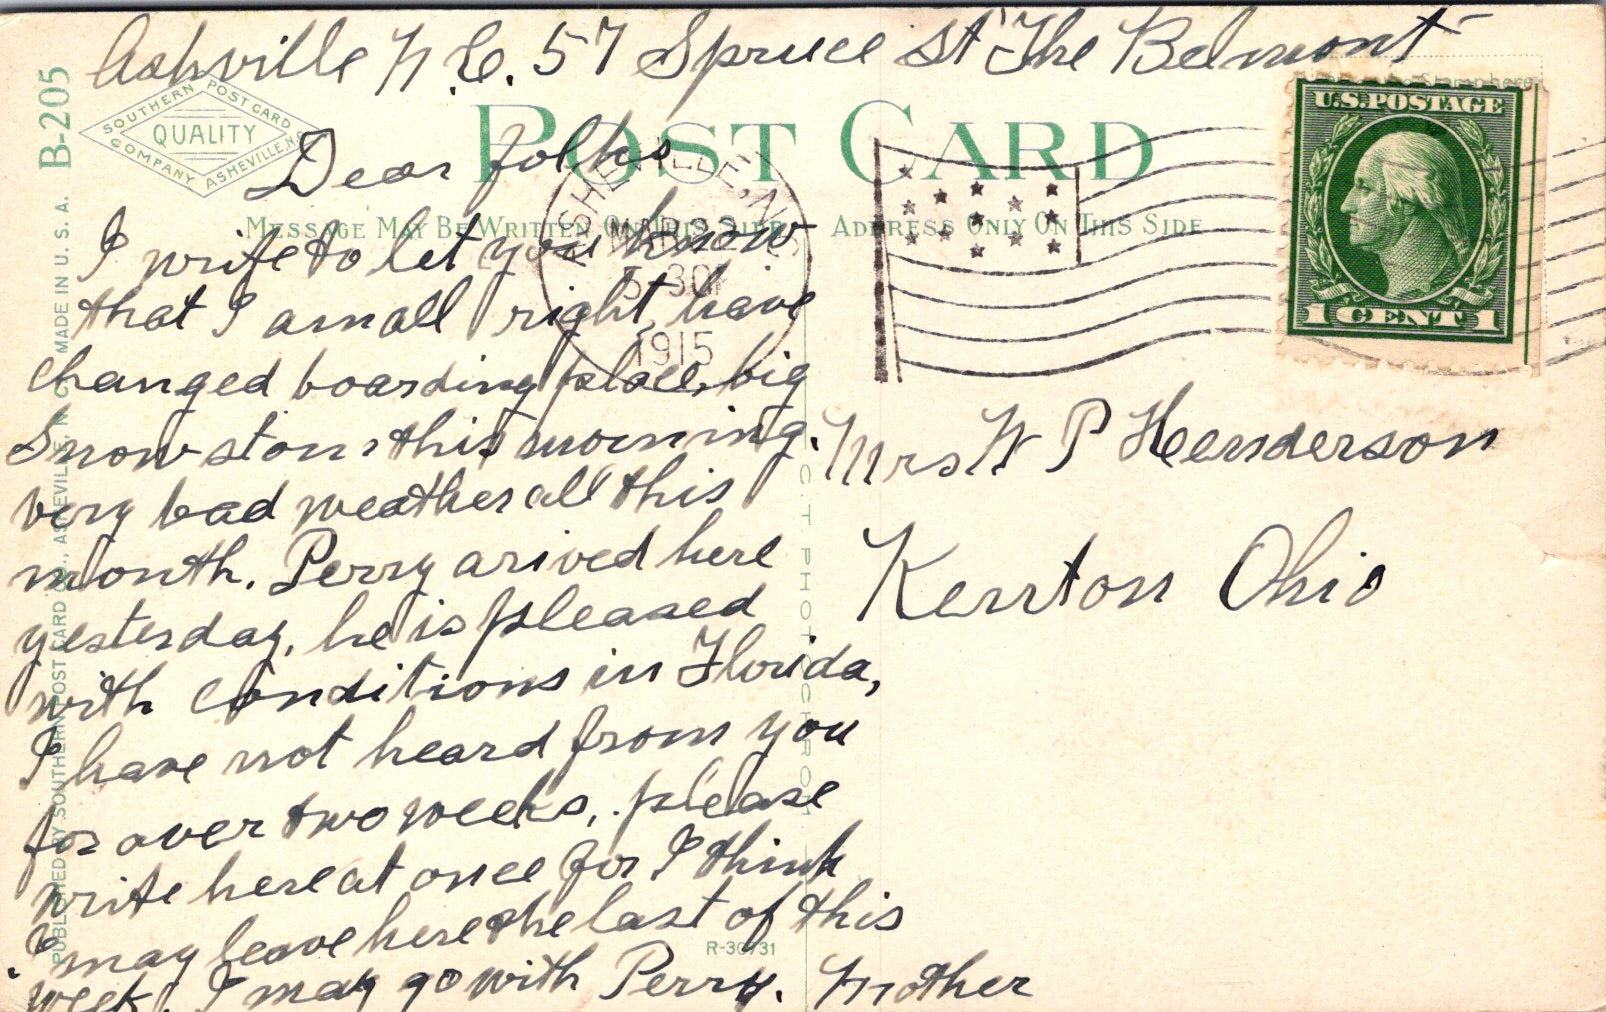 Ashville N.C. 57 Spruce St The Belmont
B-205
SOUTHERN POST CARD
QUALITY
COMPANY ASHEVILLE, N.C.
POST CARD
Stamp here
U.S. POSTAGE
1 CENT 1
ASHEVILLE, N.C.
MAR
5-30P
1915
MESSAGE MAY BE WRITTEN ON THIS SIDE
ADDRESS ONLY ON THIS SIDE
Dear folks
I write to let you know
that I am all right, have
changed boarding place, big
Snow storm this morning.
very bad weather all this
month. Perry arived here
yesterday, he is pleased
with conditions in Florida,
I have not heard from you
for over two weeks, please
write here at once for I think
I may leave here the last of this
week, I may go with Perry. Mother
Mrs W P Henderson
Kenton Ohio
PUBLISHED BY SOUTHERN POST CARD CO., ASHEVILLE, N.C. MADE IN U.S.A.
C.T. PHOTOCHROM
R-30731